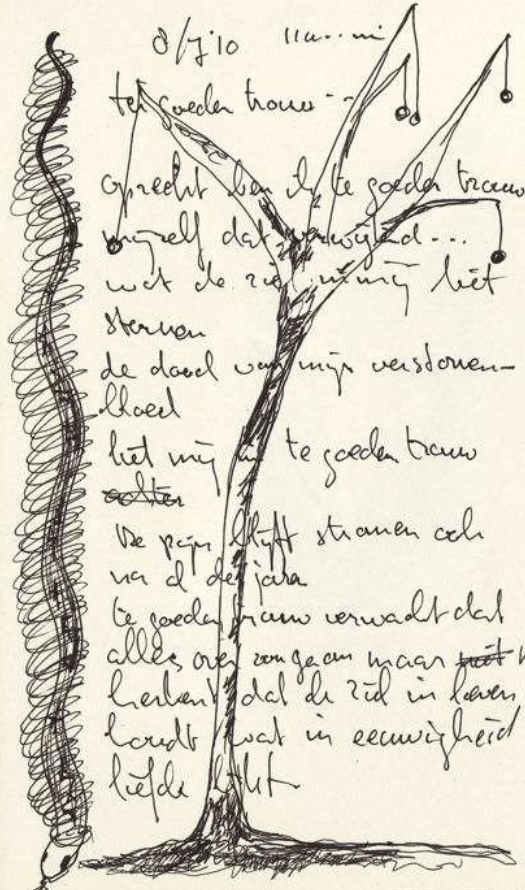 8/7'10
te goeder trouw --
oprecht ben ik te goeder trouw
mijzelf dat verwijtend...
wat de ziel in mij liet
sterven
de dood van mijn verstorven-
bloed
liet mij te goeder trouw
achter
De pijn blijft stromen ook
na al de jaren
te goeder trouw verwacht dat
alles over zou gaan maar niet
herkent dat de ziel in leven
houdt wat in eeuwigheid
liefde